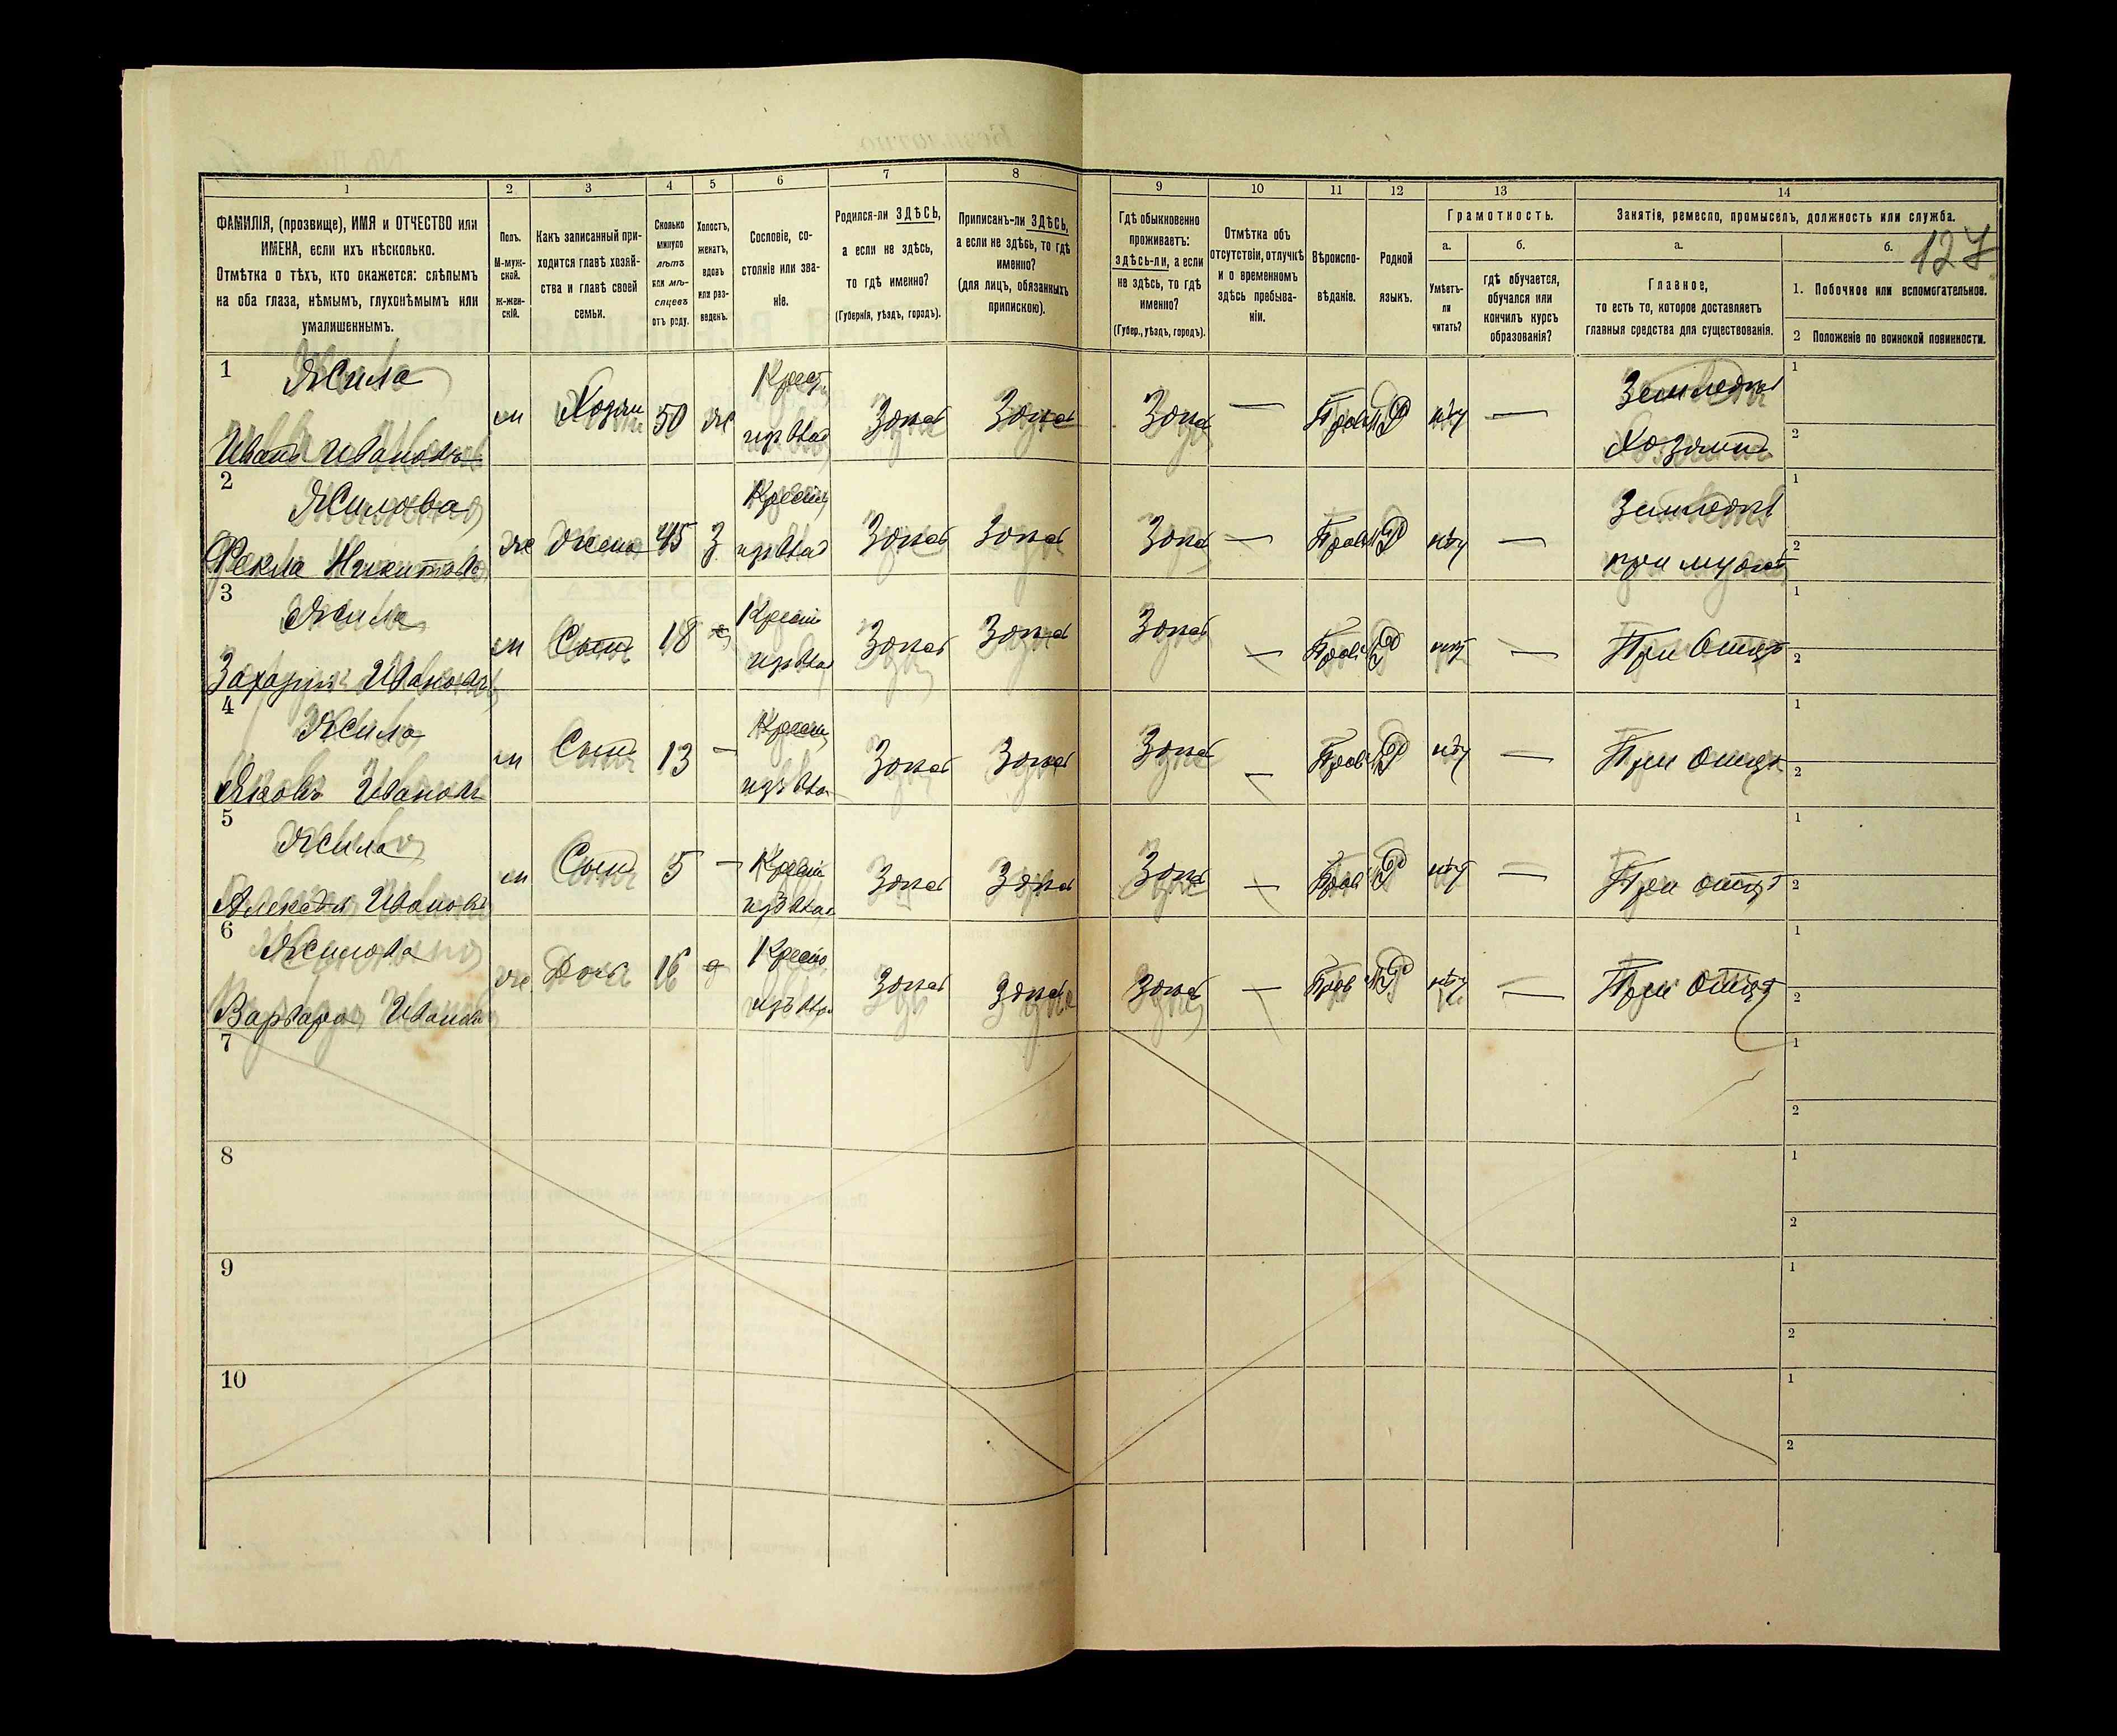 127
1 2 3 4 5 6 7 8 9 10 11 12 13 14
ФАМИЛІЯ, (прозвище), ИМЯ и ОТЧЕСТВО или
ИМЕНА, если ихъ нѣсколько.
Отмѣтка о тѣхъ, кто окажется: слѣпымъ
на оба глаза, нѣмымъ, глухонѣмымъ или
умалишеннымъ.
Полъ.
М-муж-
ской.
ж-жен-
скій.
Какъ записанный при-
ходится главѣ хозяй-
ства и главѣ своей
семьи.
Сколько
минуло
лѣтъ
или мѣ-
сяцевъ
отъ роду.
Холостъ,
женатъ,
вдовъ
или раз-
веденъ.
Сословіе, со-
стояніе или зва-
ніе.
Родился-ли ЗДѢСЬ,
а если не здѣсь,
то гдѣ именно?
(Губернія, уѣздъ, городъ).
Приписанъ-ли ЗДѢСЬ,
а если не здѣсь, то гдѣ
именно?
(для лицъ, обязанныхъ
припискою).
Гдѣ обыкновенно
проживаетъ:
здѣсь-ли, а если
не здѣсь, то гдѣ
именно?
(Губер., уѣздъ, городъ).
Отмѣтка объ
отсутствіи, отлучкѣ
и о временномъ
здѣсь пребыва-
ніи.
Вѣроиспо-
вѣданіе.
Родной
языкъ.
Грамотность.
а.
Умѣетъ-
ли
читать?
б.
гдѣ обучается,
обучался или
кончилъ курсъ
образованія?
Занятіе, ремесло, промыселъ, должность или служба.
а.
Главное,
то есть то, которое доставляетъ
главныя средства для существованія.
б.
1. Побочное или вспомогательное.
2 Положеніе по воинской повинности.
1 Жила Крест 1
Иванъ Ивановъ м Хозяи 50 ж Здѣсь Здѣсь Здѣсь — Прав нѣт — Хозяинъ 2
2 Жилова Крест 1
Фекла Никитова ж Жена 45 з Здѣсь Здѣсь Здѣсь — Прав нѣт — при мужѣ 2
3 Жила Крест 1
Захарій Ивановъ м Сынъ 18 Здѣсь Здѣсь Здѣсь — Прав нѣт — При Отцѣ 2
4 Жила Крест 1
Яковъ Ивановъ м Сынъ 13 — Здѣсь Здѣсь Здѣсь — Прав нѣт — При отцѣ 2
5 Жила Крест 1
Алексѣй Ивановъ м Сынъ 5 — Здѣсь Здѣсь Здѣсь — Прав нѣт — При отцѣ 2
6 Жилова Крест 1
Варвара Иванова ж Дочь 16 Здѣсь Здѣсь Здѣсь — Прав нѣт — При отцѣ 2
7 1
2
8 1
2
9 1
2
10 1
2